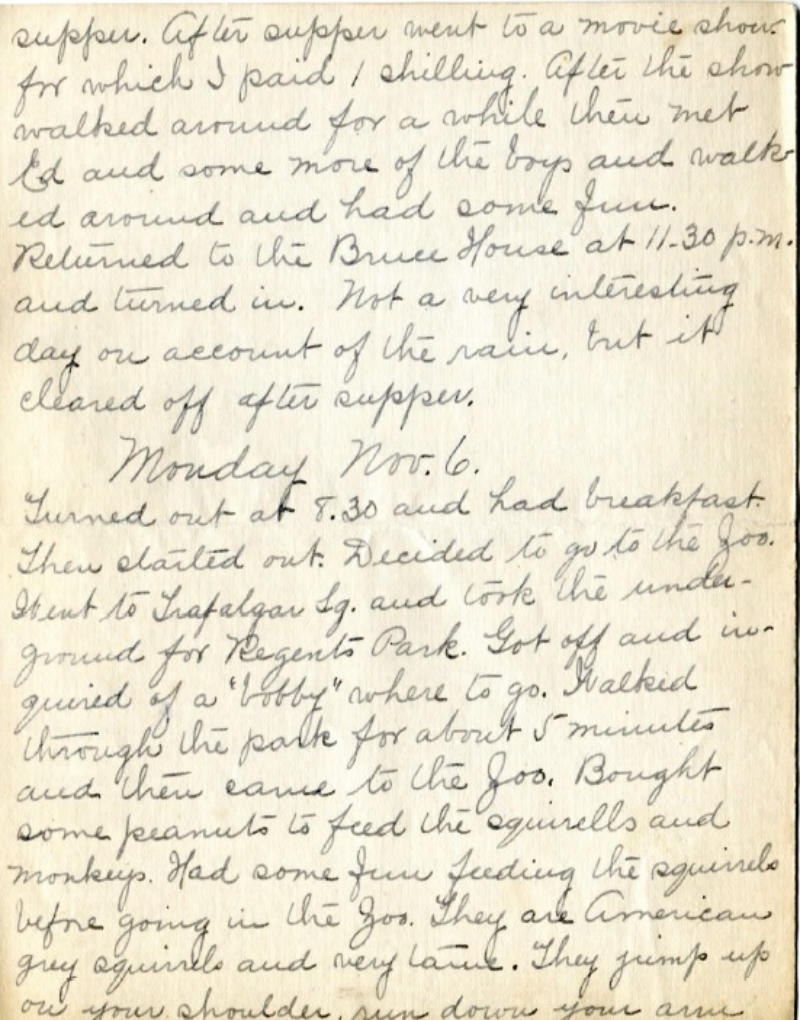 supper. After supper went to a movie show
for which I paid 1 shilling. After the show
walked around for a while then met
Ed and some more of the boys and walk-
ed around and had some fun.
Returned to the Bruce House at 11-30 p.m.
and turned in. Not a very interesting
day on account of the rain, but it
cleared off after supper.
Monday Nov. 6.
Turned out at 8.30 and had breakfast.
Then started out. Decided to go to the Zoo.
Went to Trafalgar Sq. and took the under-
ground for Regents Park. Got off and in-
quired of a "bobby" where to go. Walked
through the park for about 5 minutes
and then came to the Zoo. Bought
some peanuts to feed the squirells and
monkeys. Had some fun feeding the squirrels
before going in the Zoo. They are American
grey squirrels and very tame. They jump up
on your shoulder, run down your arm